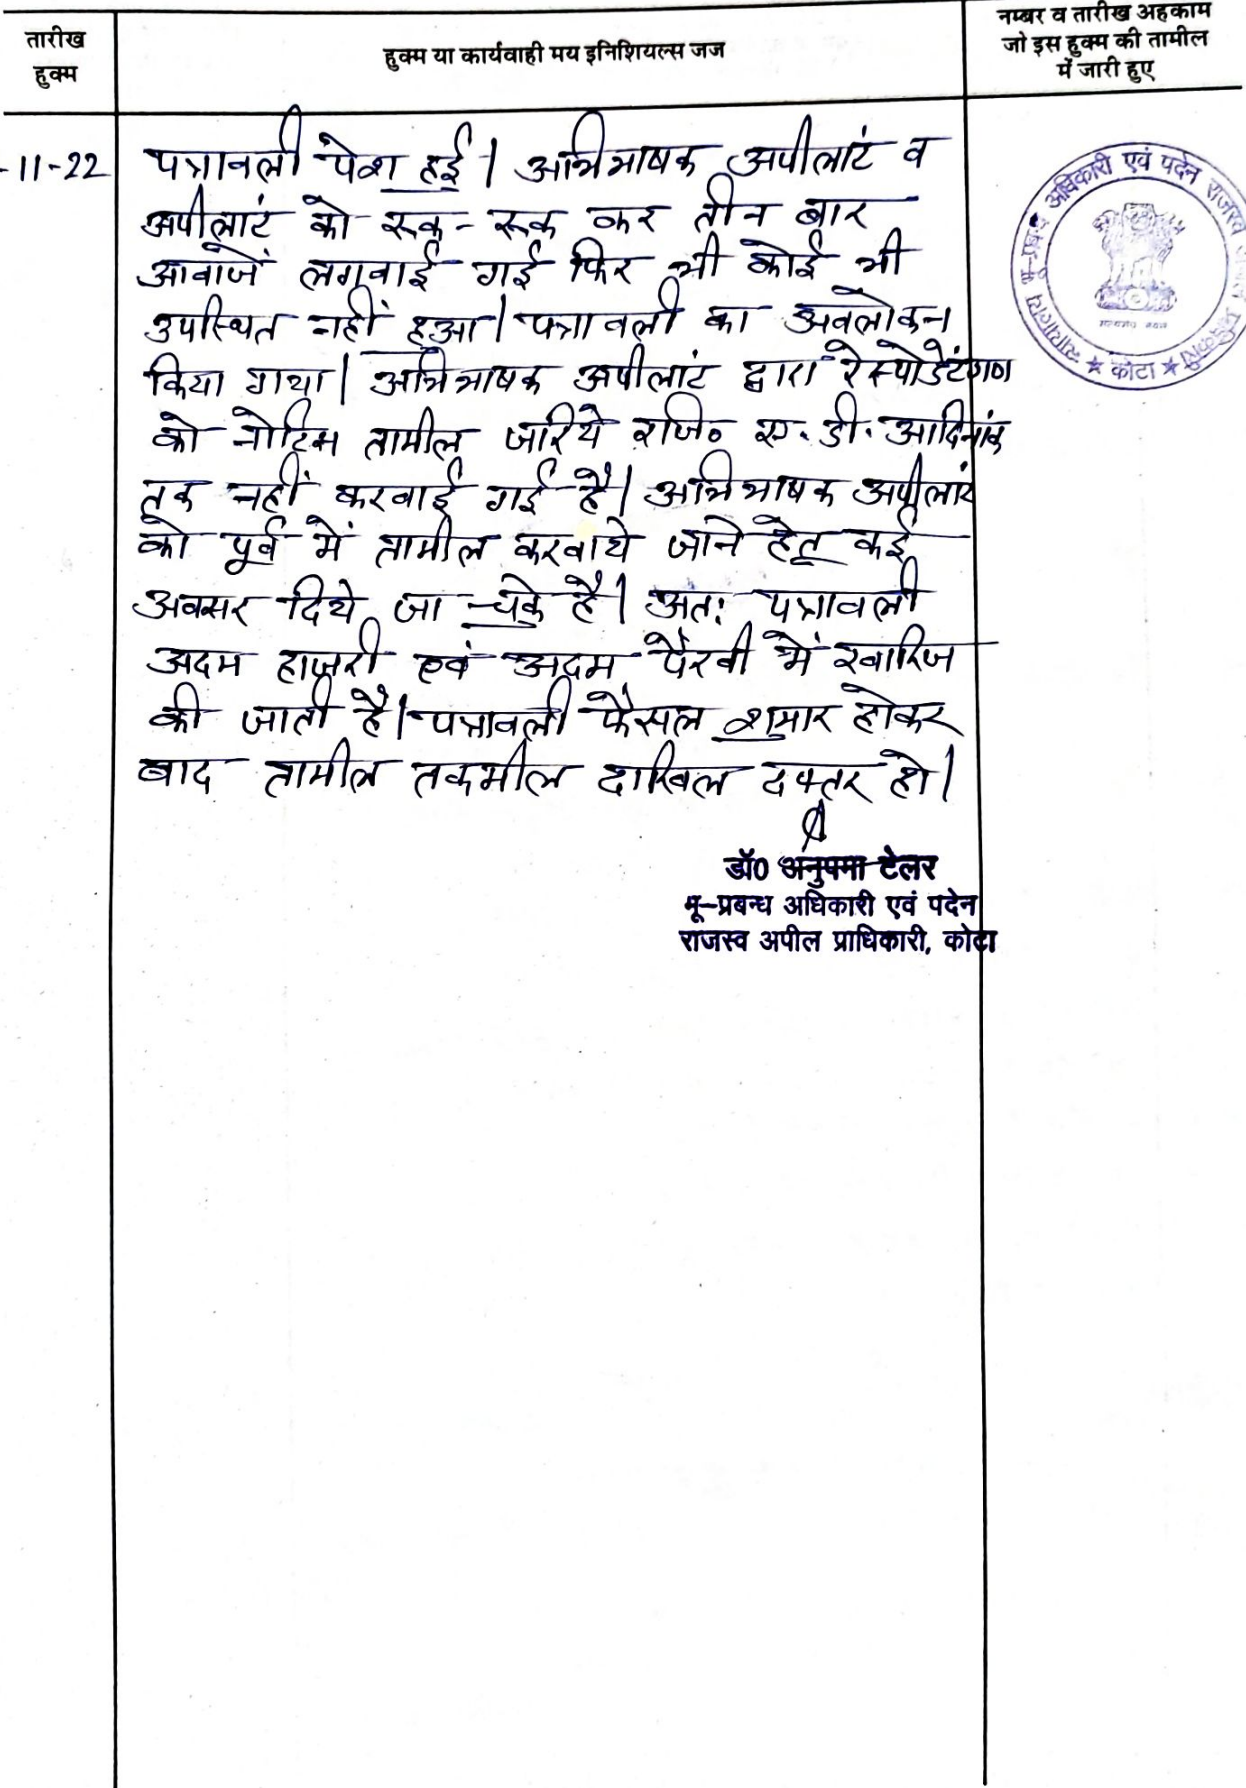 तारीख
हुक्म
हुक्म या कार्यवाही मय इनिशियल्स जज
नम्बर व तारीख अहकाम
जो इस हुक्म की तामील
में जारी हुए
-11-22
पत्रावली पेश हुई। अभिभाषक अपीलांट व
अपीलांट को रूक-रूक कर तीन बार
आवाजें लगवाई गई फिर भी कोई भी
उपस्थित नहीं हुआ। पत्रावली का अवलोकन
किया गया। अभिभाषक अपीलांट द्वारा रेस्पोडेंटगण
को नोटिस तामील जरिये रजि० ए.डी. आदिनांक
तक नहीं करवाई गई है। अभिभाषक अपीलांट
को पूर्व में तामील करवाये जाने हेतू कई
अवसर दिये जा चुके है। अतः पत्रावली
अदम हाजरी एवं अदम पैरवी में खारिज
की जाती है। पत्रावली फैसल शुमार होकर
बाद तामील तकमील दाखिल दफ्तर हो।
डॉ0 अनुपमा टेलर
भू-प्रबन्ध अधिकारी एवं पदेन
राजस्व अपील प्राधिकारी, कोटा
न्यायालय भू-प्रबन्ध अधिकारी एवं पदेन राजस्व
★ कोटा ★